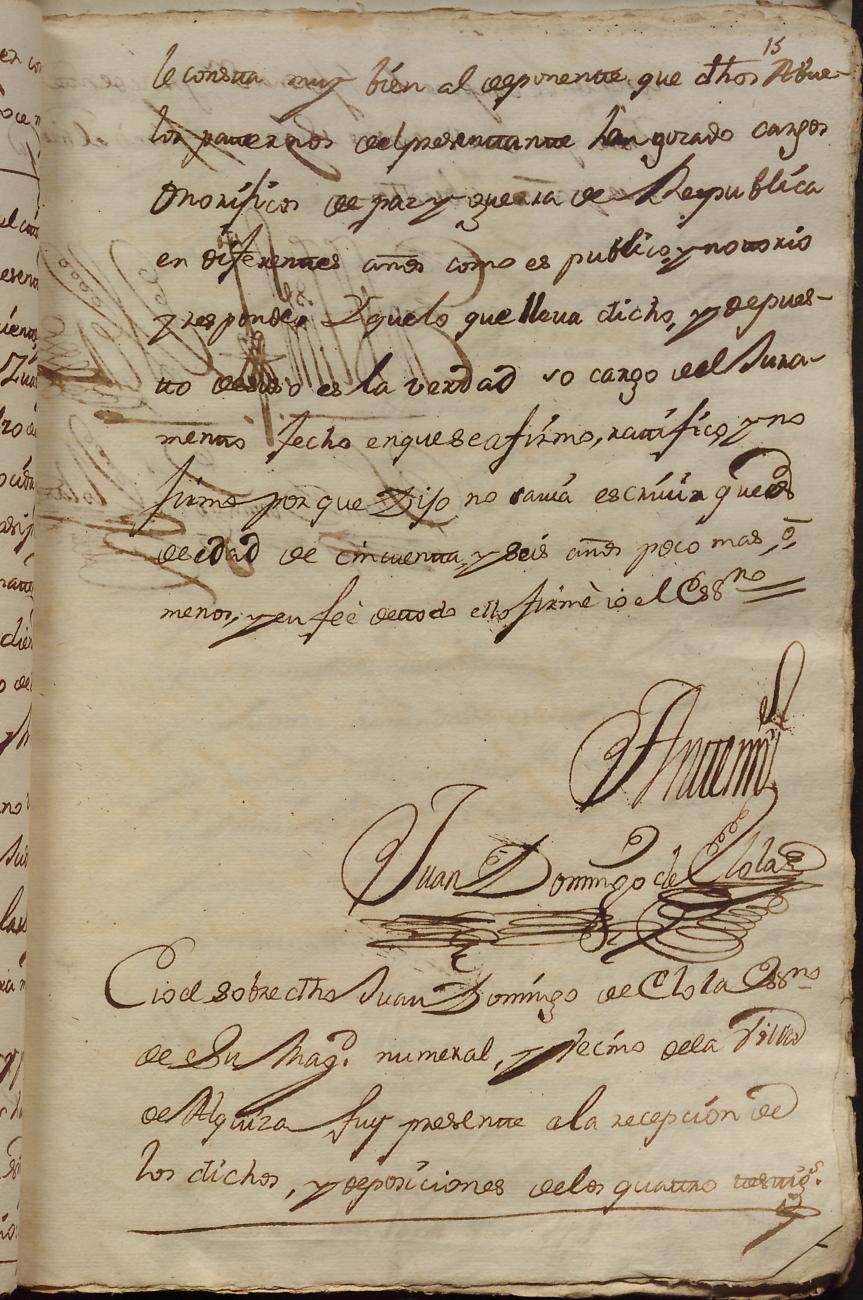 15
le consta muy bien al deponente que dhos Abue-
los paternos del presentante han gozado cargos
onorificos de paz y guerra de Republica
en diferentes años como es publico, y notorio
y responde. Y que lo que lleva dicho, y depues-
to de suso es la verdad so cargo del Jura-
mento fecho en que se afirmo, ratifico, y no
firmo por que Dijo no savia escrivir que es
de edad de cinquenta, y seis años poco mas, ô
menos, y en feè de todo ello firmè io el Essno
Antemi
Juan Domingo de Elola
E io el sobre dho Juan Domingo de Elola Essno
de Su Magd. numeral, y Vecino de la Villa
de Alquiza fuy presente a la recepcion de
los dichos, y deposiciones de los quatro testigs.